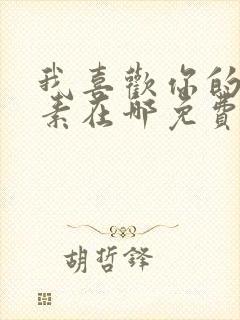 我喜歡你的
素在哪免費
胡哲鋒